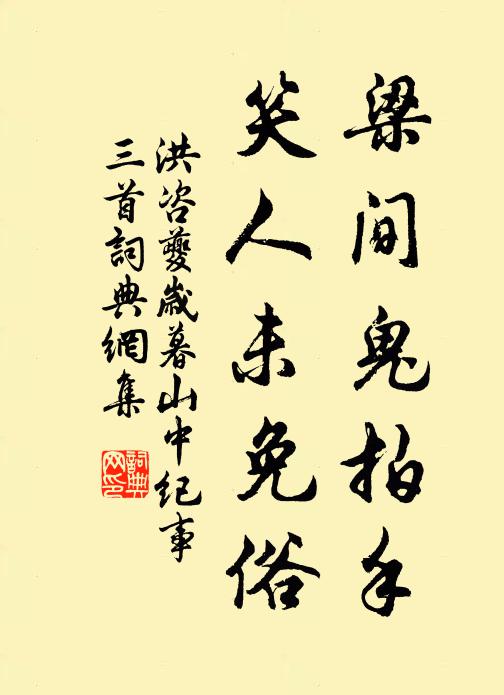 梁间鬼拍手
笑人未免俗
洪咨夔歲暮山中紀事
三首詞典網集
詞典
网印